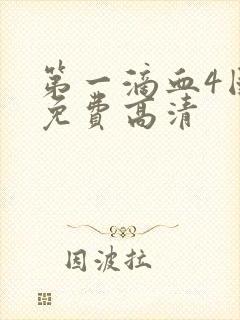 第一滴血4国
免费高清
因波拉